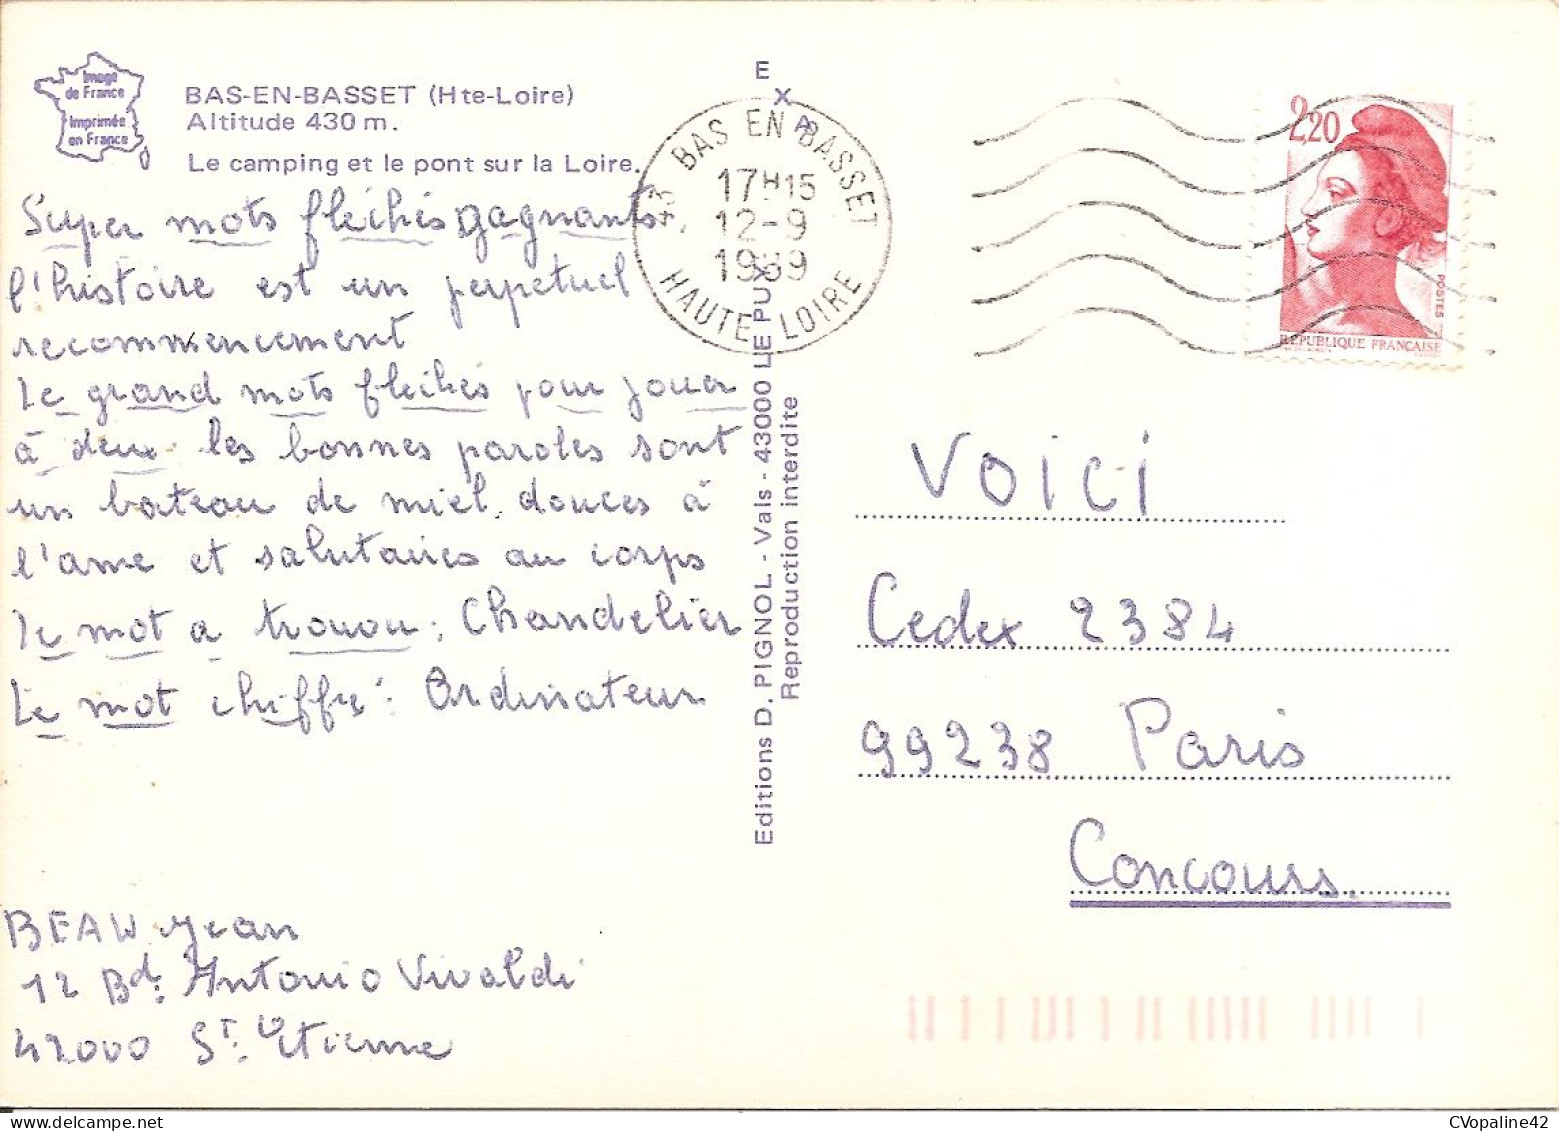 Image
de France
Imprimée
en France
BAS-EN-BASSET (Hte-Loire)
Altitude 430 m.
Le camping et le pont sur la Loire.
Super mots fléchés gagnants
l'histoire est un perpetuel
recommencement
Le grand mots fléchés pour jouer
à deux. les bonnes paroles sont
un bateau de miel, douces à
l'ame et salutaires au corps
Le mot a trouou: Chandelier
Le mot chiffré: Ordinateur
BEAW Jean
12 Bd: Antonio Vivaldi
42000 ST. Etienne
EXA
Editions D. PIGNOL - Vals - 43000 LE PUY
Reproduction interdite
43 BAS EN BASSET
17H15
12-9
1989
HAUTE LOIRE
2,20
POSTES
REPUBLIQUE FRANÇAISE
VOICI
Cedex 2384
99238 Paris
Concours.
CVopaline42